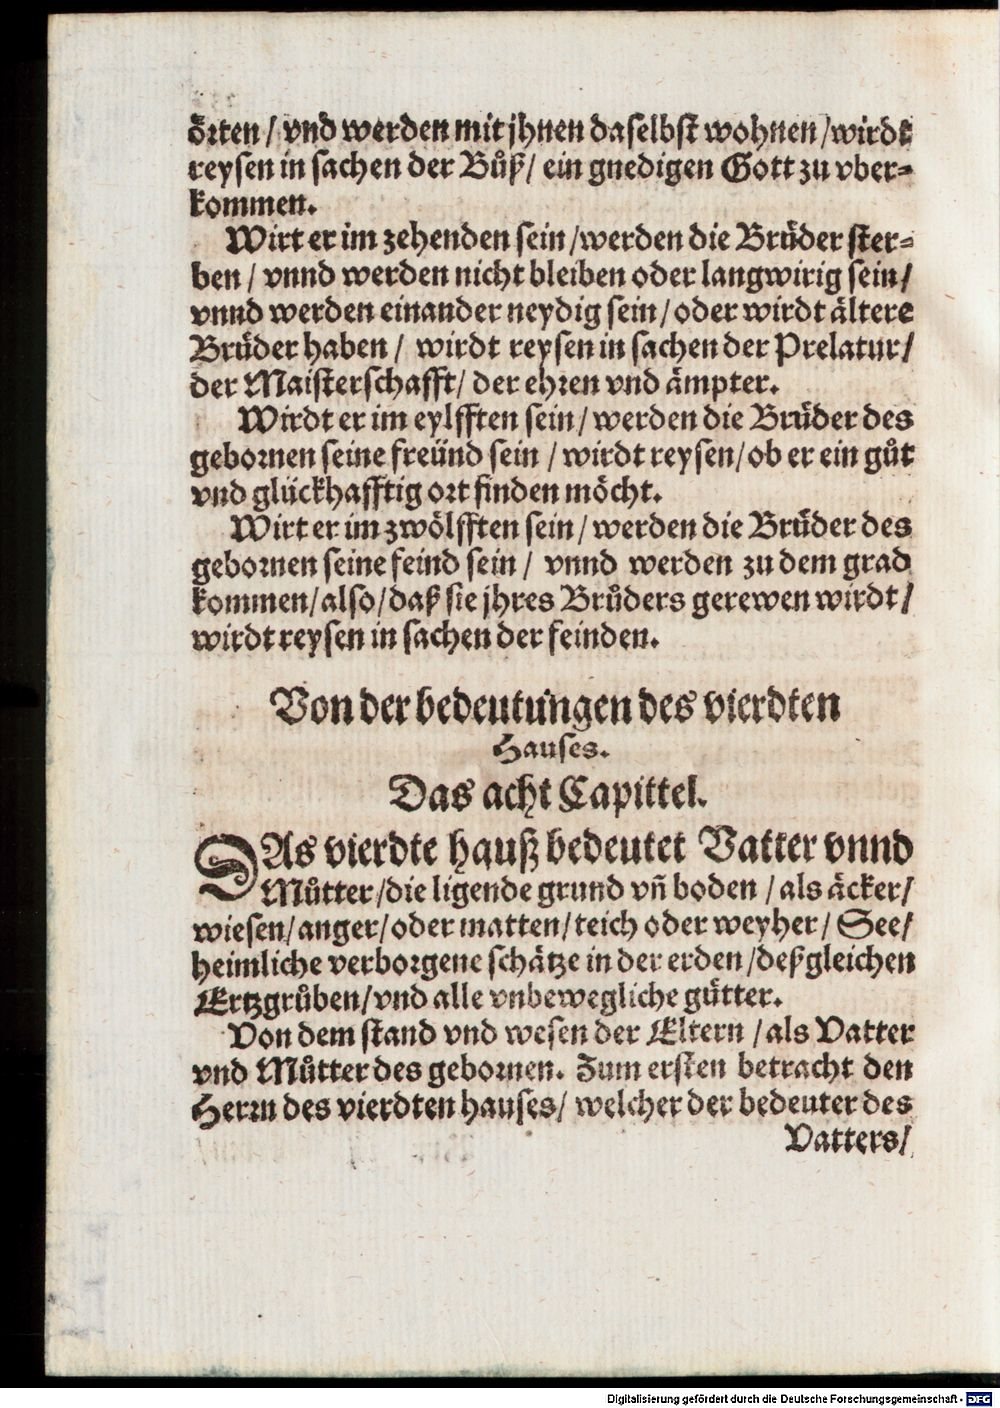 örten / vnd werden mit jhnen daselbst wohnen / wirdt
reysen in sachen der Bůß / ein gnedigen Gott zu vber⸗
kommen.
Wirt er im zehenden sein / werden die Brüder ster⸗
ben / vnnd werden nicht bleiben oder langwirig sein /
vnnd werden einander neydig sein / oder wirdt ältere
Brüder haben / wirdt reysen in sachen der Prelatur /
der Maisterschafft / der ehren vnd ämpter.
Wirdt er im eylfften sein / werden die Brüder des
gebornen seine freünd sein / wirdt reysen / ob er ein gůt
vnd glückhafftig ort finden möcht.
Wirt er im zwölfften sein / werden die Brüder des
gebornen seine feind sein / vnnd werden zu dem grad
kommen / also / daß sie jhres Brůders gerewen wirdt /
wirdt reysen in sachen der feinden.
Von der bedeutungen des vierdten
Hauses.
Das acht Capittel.
DAs vierdte hauß bedeutet Vatter vnnd
Můtter / die ligende grund vñ boden / als äcker /
wiesen / anger / oder matten / teich oder weyher / See /
heimliche verborgene schätze in der erden / deßgleichen
Ertzgrůben / vnd alle vnbewegliche gütter.
Von dem stand vnd wesen der Eltern / als Vatter
vnd Můtter des gebornen. Zum ersten betracht den
Herrn des vierdten hauses / welcher der bedeuter des
Vatters /
Digitalisierung gefördert durch die Deutsche Forschungsgemeinschaft - DFG